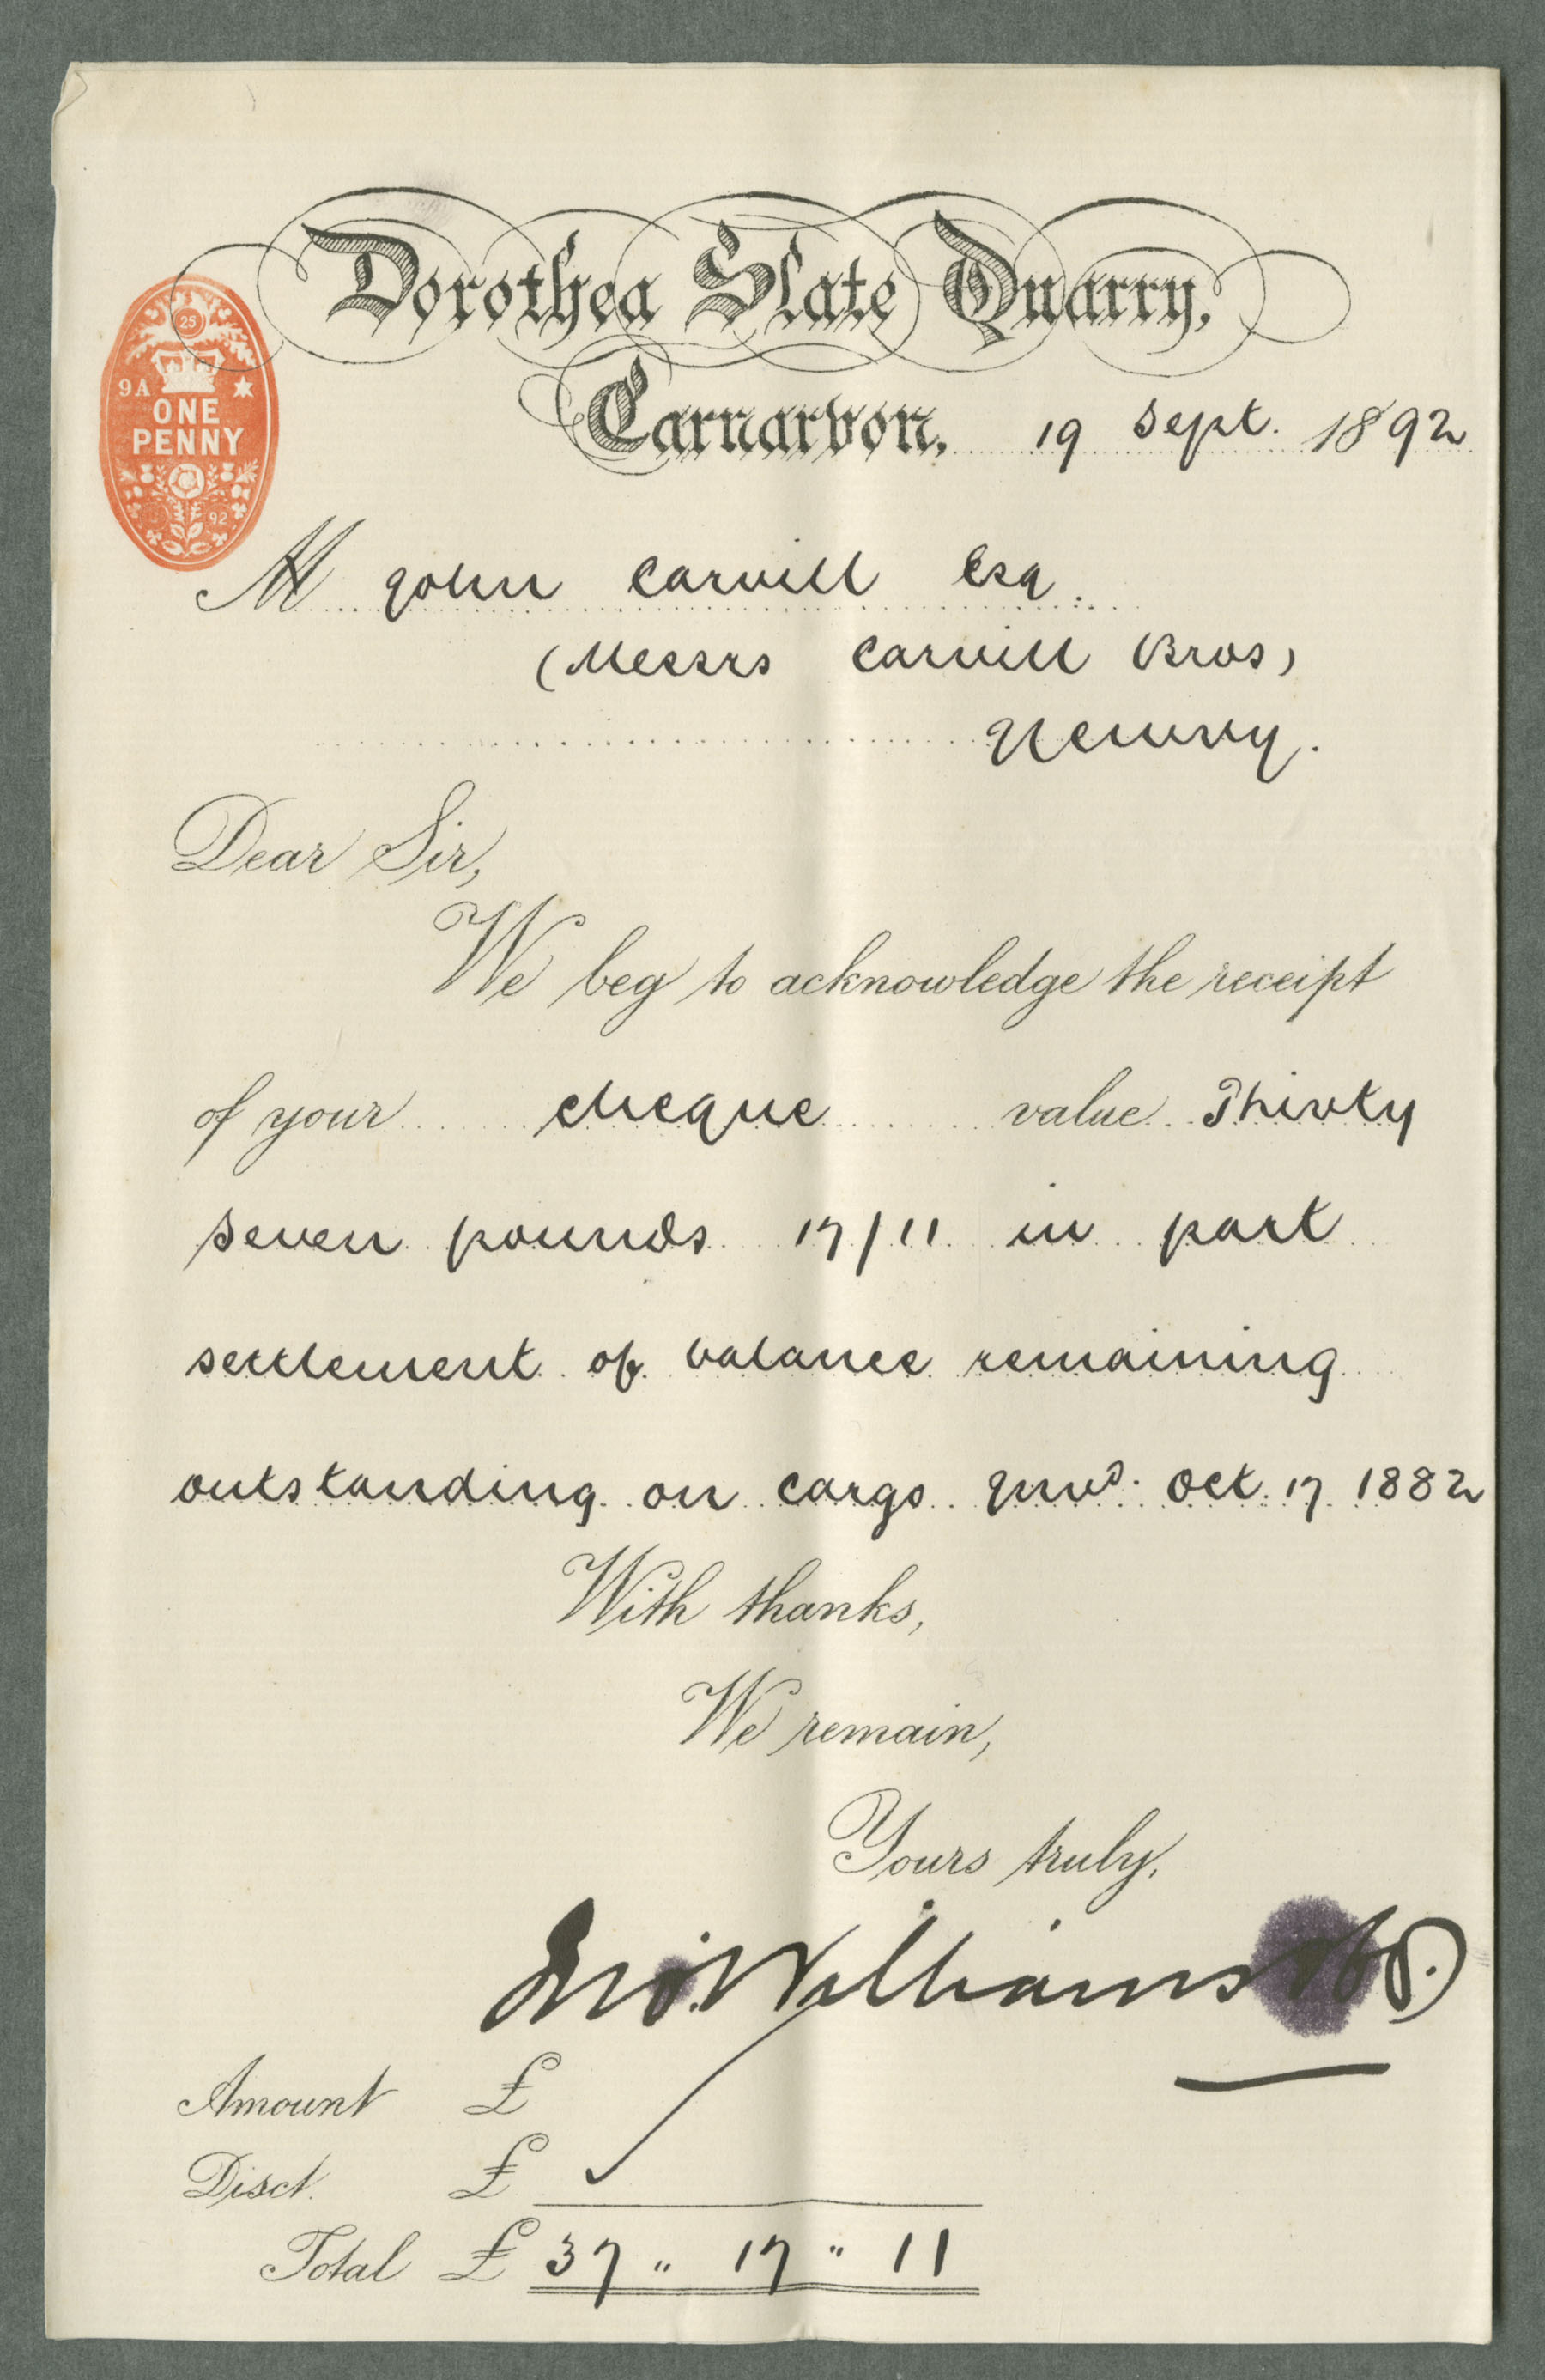 Dorothea Slate Quarry,
Carnarvon. 19 Sept. 1892
25
9A
ONE
PENNY
92
M John Carvill Esq.
(Messrs Carvill Bros)
Newry.
Dear Sir,
We beg to acknowledge the receipt
of your cheque value Thirty
seven pounds 17/11 in part
settlement of balance remaining
outstanding on cargo Invd. Oct. 17 1882
With thanks,
We remain,
Yours truly,
Jno. Williams
Amount £
Disct. £
Total £ 37 " 17 " 11